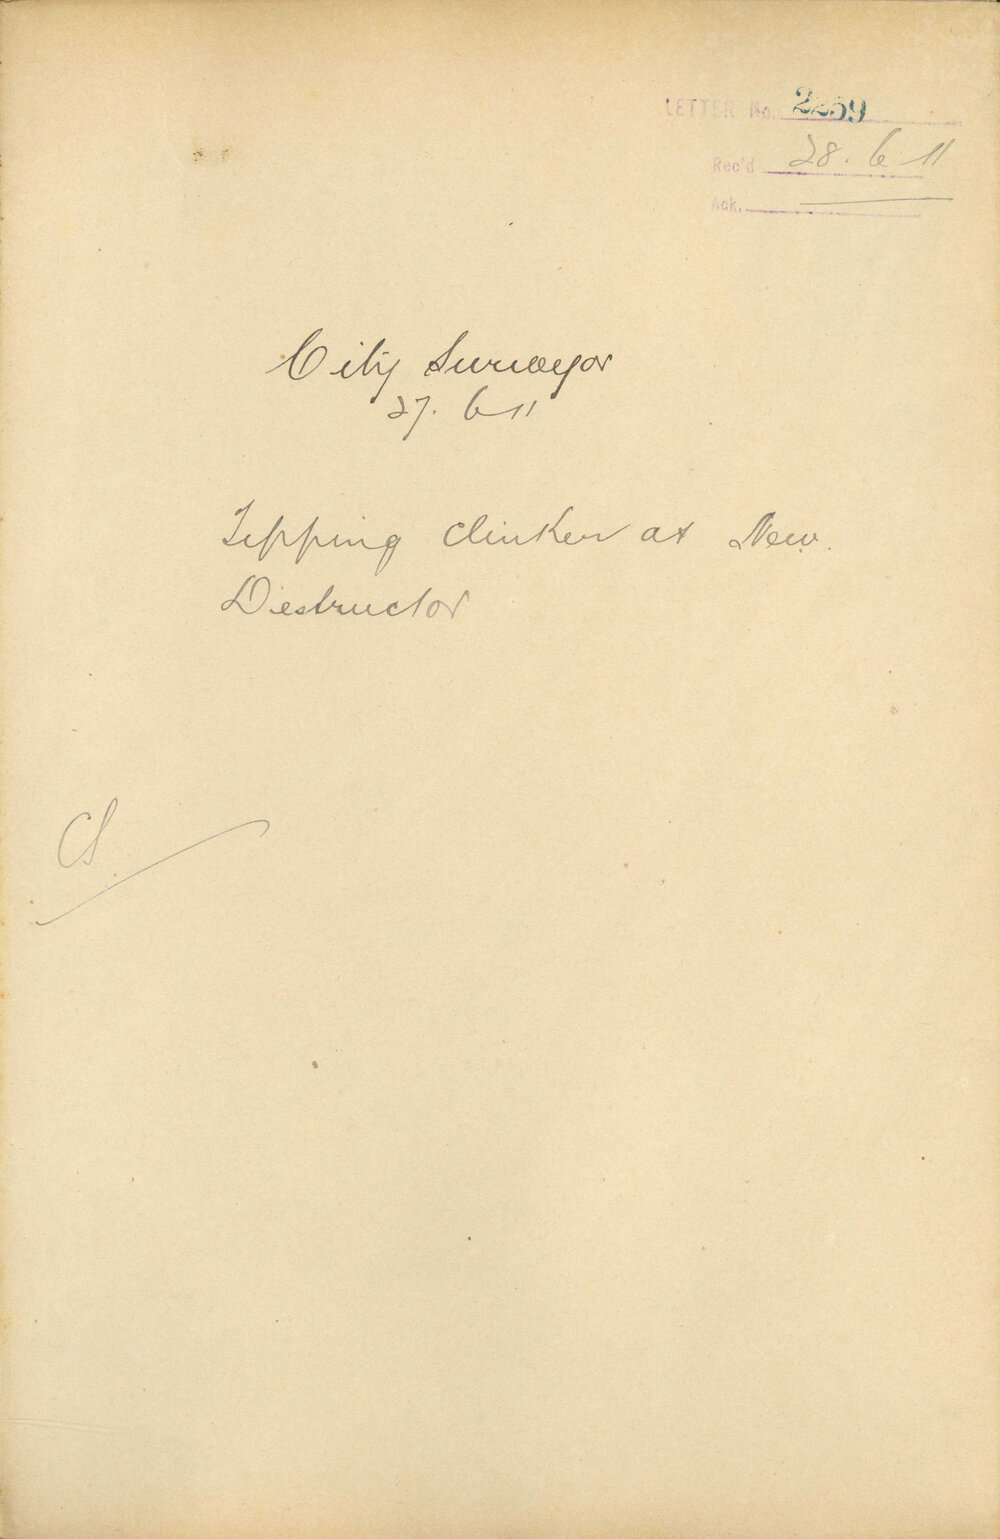 LETTER No. 2259
Rec'd 28. 6 11
Ack.
City Surveyor
27. 6 11
Tipping clinker at New
Destructor
CS